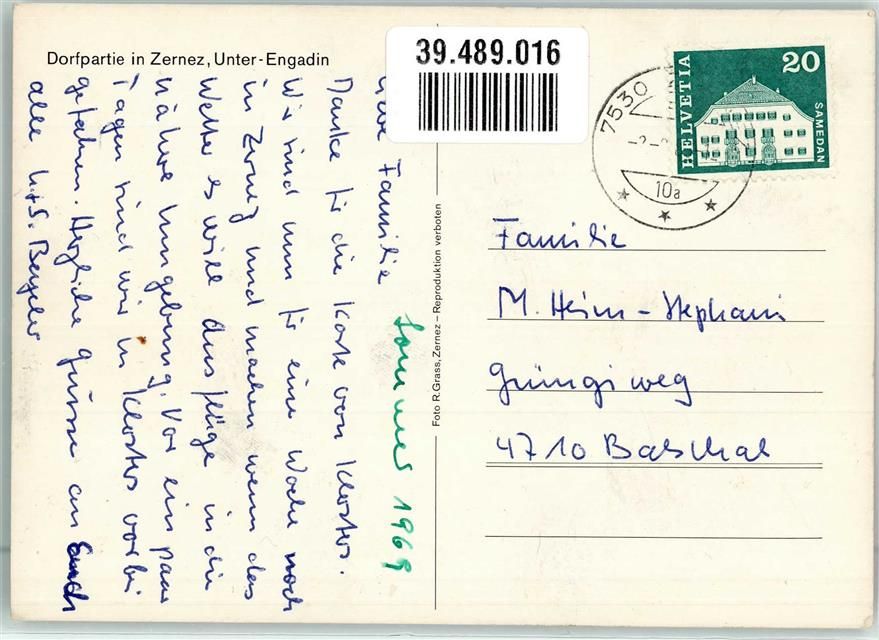 Dorfpartie in Zernez, Unter-Engadin
39.489.016
HELVETIA
20
SAMEDAN
7530
10a
Liebe Familie
Danke für die Karte von Klosters.
Wir sind nun für eine Woche noch
in Zernez und machen wenn das
Wetter es will Ausflüge in die
nähere Umgebung. Vor ein paar
Tagen sind wir in Klosters vorbei
gefahren. Herzliche Grüsse an Euch
alle
Sommer 1969
Foto R. Grass, Zernez – Reproduktion verboten
Familie
M. Heim-Stephani
weg
4710 Balsthal